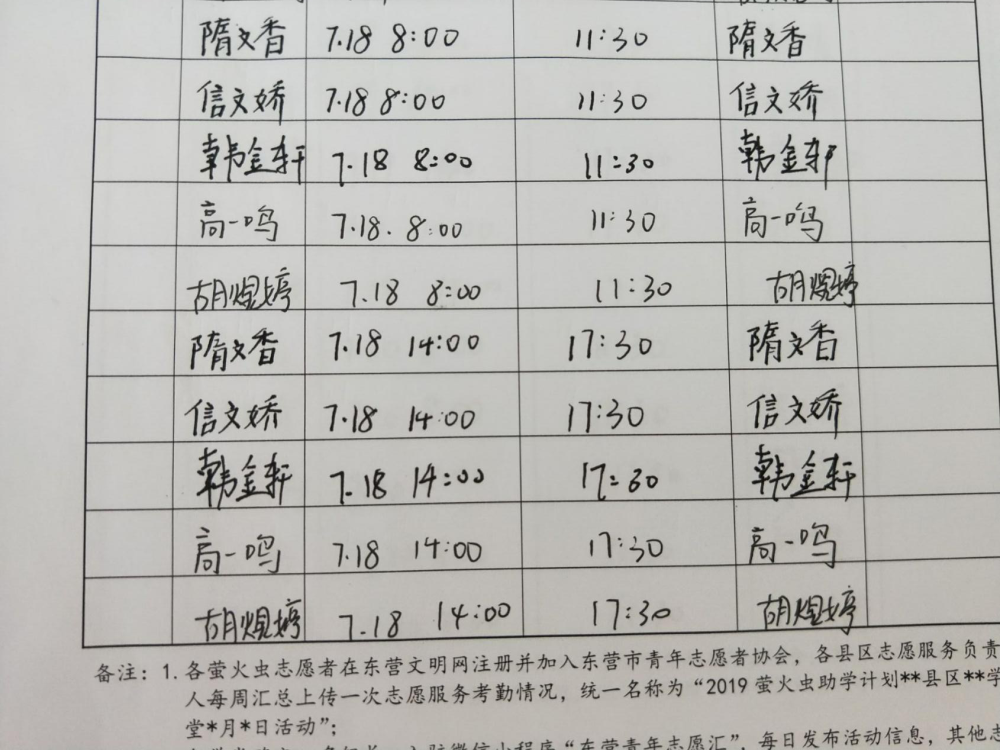 隋文香 7.18 8:00 11:30 隋文香
信文娇 7.18 8:00 11:30 信文娇
韩金轩 7.18 8:00 11:30 韩金轩
高一鸣 7.18. 8:00 11:30 高一鸣
胡焜婷 7.18 8:00 11:30 胡焜婷
隋文香 7.18 14:00 17:30 隋文香
信文娇 7.18 14:00 17:30 信文娇
韩金轩 7.18 14:00 17:30 韩金轩
高一鸣 7.18 14:00 17:30 高一鸣
胡焜婷 7.18 14:00 17:30 胡焜婷
备注：1.各萤火虫志愿者在东营文明网注册并加入东营市青年志愿者协会，各县区志愿服务负责
人每周汇总上传一次志愿服务考勤情况，统一名称为“2019 萤火虫助学计划**县区**学
堂*月*日活动”；
“东营青年志愿汇”，每日发布活动信息，其他志